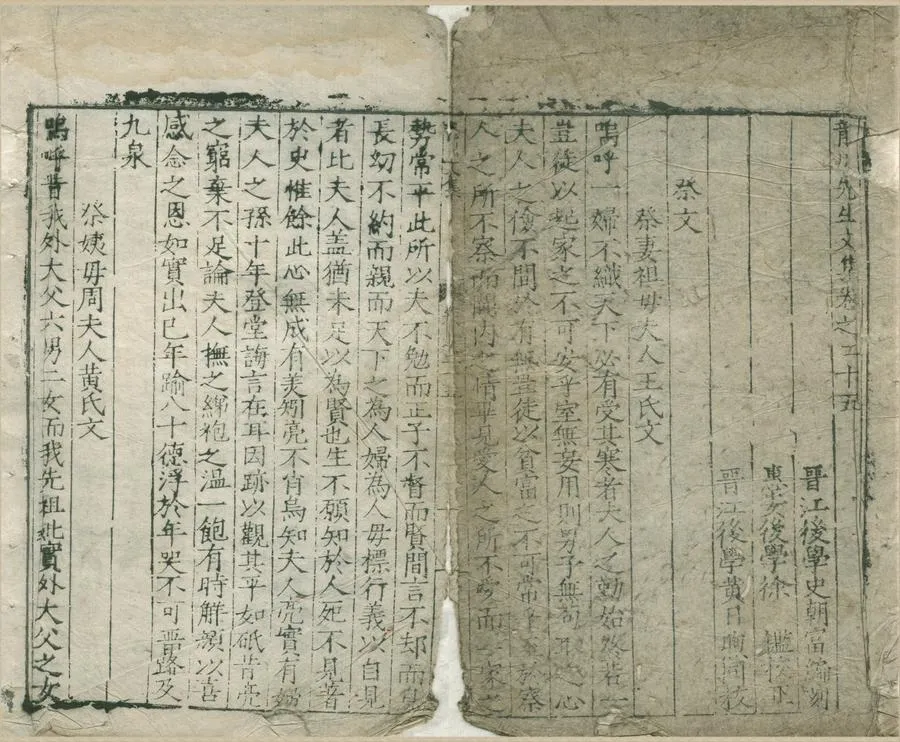 龍湖先生文集卷之二十五
晉江後學史朝富編刻
惠安後學徐 鑑校正
晉江後學黃日昫同校
祭文
祭妻祖母夫人王氏文
嗚呼一婦不織天下必有受其寒者夫人之勤始終若一
豈徒以起家之不可安乎室無妄用則男子無苟取之心
夫人之儉不間於有無豈徒以貧富之不可常乎至於察
人之所不察而閫內之情畢見愛人之所不愛而一家之
勢常平此所以夫不勉而正子不督而賢間言不却而
長幼不約而親而天下之為人婦為人母標行義以自見
者比夫人盖猶未足以為賢也生不願知於人死不見著
於史惟餘此心無成有美矧亮不肖烏知夫人亮實有婦
夫人之孫十年登堂誨言在耳因跡以觀其平如砥昔亮
之窮棄不足論夫人撫之綈袍之溫一飽有時解顏以喜
感念之恩如實出已年踰八十德浮於年哭不可晉路及
九泉
祭姨毋周夫人黃氏文
嗚呼昔我外大父六男二女而我先祖妣實外大父之女